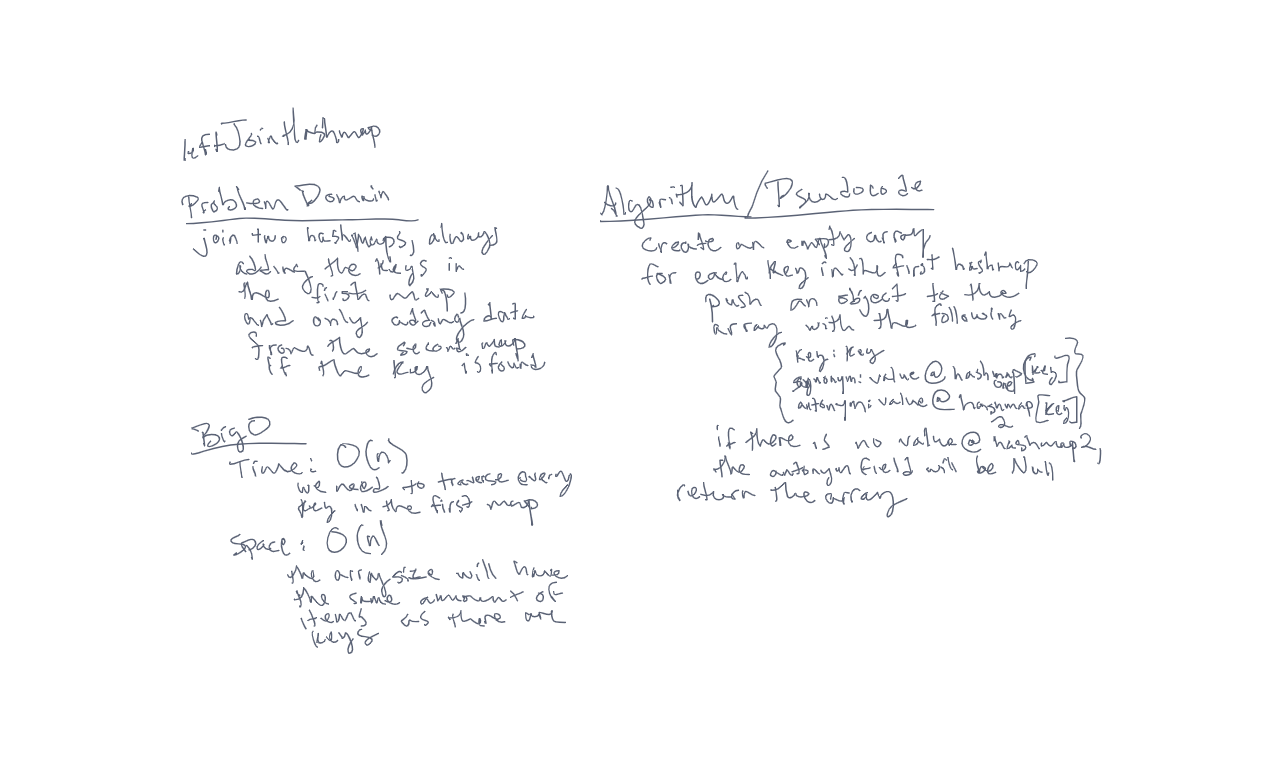 leftJoinHashmap
Problem Domain
join two hashmaps, always
adding the keys in
the first map,
and only adding data
from the second map
if the key is found
Big O
Time: O(n)
we need to traverse every
key in the first map
Space: O(n)
the array size will have
the same amount of
items as there are
keys
Algorithm / Psuedocode
create an empty array
for each key in the first hashmap
push an object to the
array with the following
{ key: key
synonym: value @ hashmap one [key]
antonym: value @ hashmap 2 [key] }
if there is no value @ hashmap2,
the antonym field will be Null
return the array